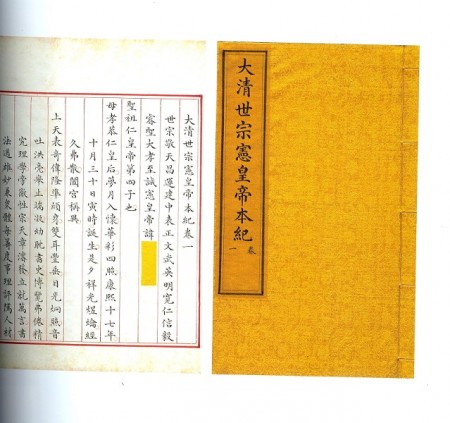 大清世宗憲皇帝本紀
卷一
大清世宗憲皇帝本紀卷一
世宗敬天昌運建中表正文武英明寬仁信毅
睿聖大孝至誠憲皇帝諱
聖祖仁皇帝第四子也
母孝恭仁皇后夢月入懷華彩四照康熙十七年
十月三十日寅時誕生是夕祥光煜爚經
久弗散闔宮稱異
上天表奇偉隆準頎身雙耳豐垂目光炯照音
吐洪亮舉止端凝幼耽書史博覽弗倦精
究理學旁徹性宗天章濬發立就萬言書
法遒雄妙兼衆體每籌度事理評隲人材